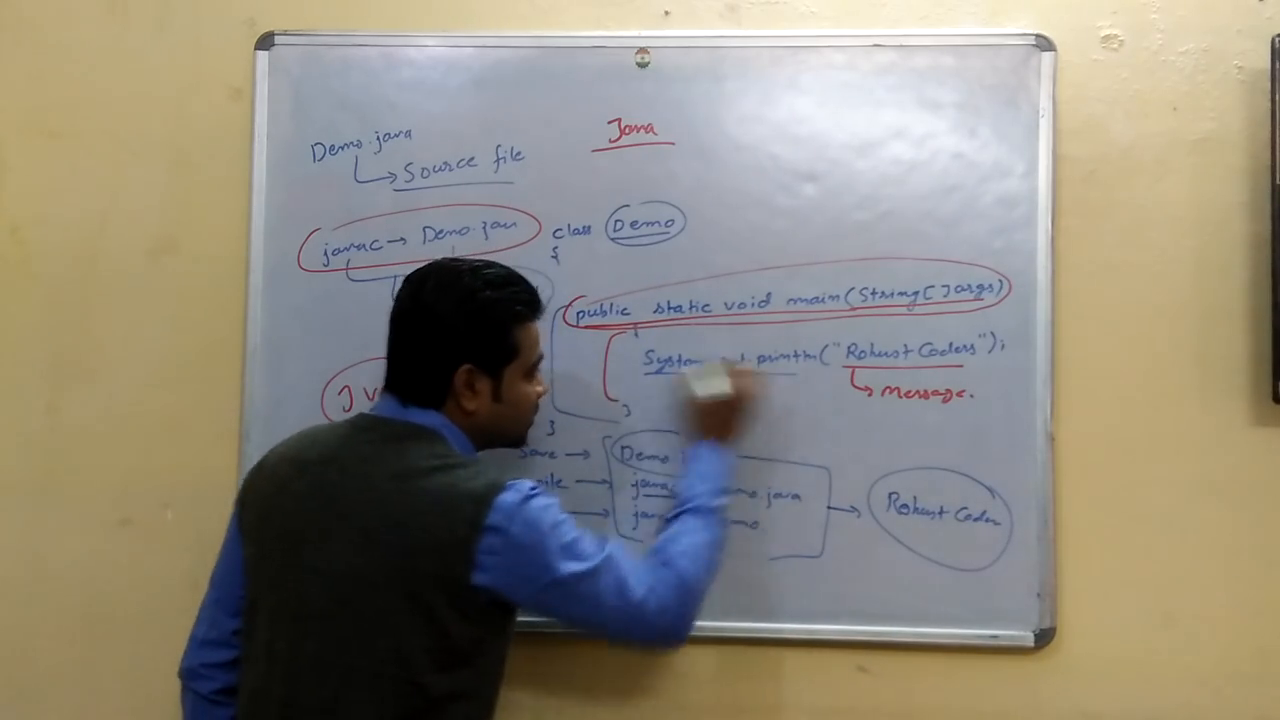 Java
Demo.java
Source file
javac → Demo.java
class Demo
{
public static void main(String[]args)
{
System.out.println("Robust Coders");
message.
}
}
JV
Save → Demo
java
java
.java
Robust Coder